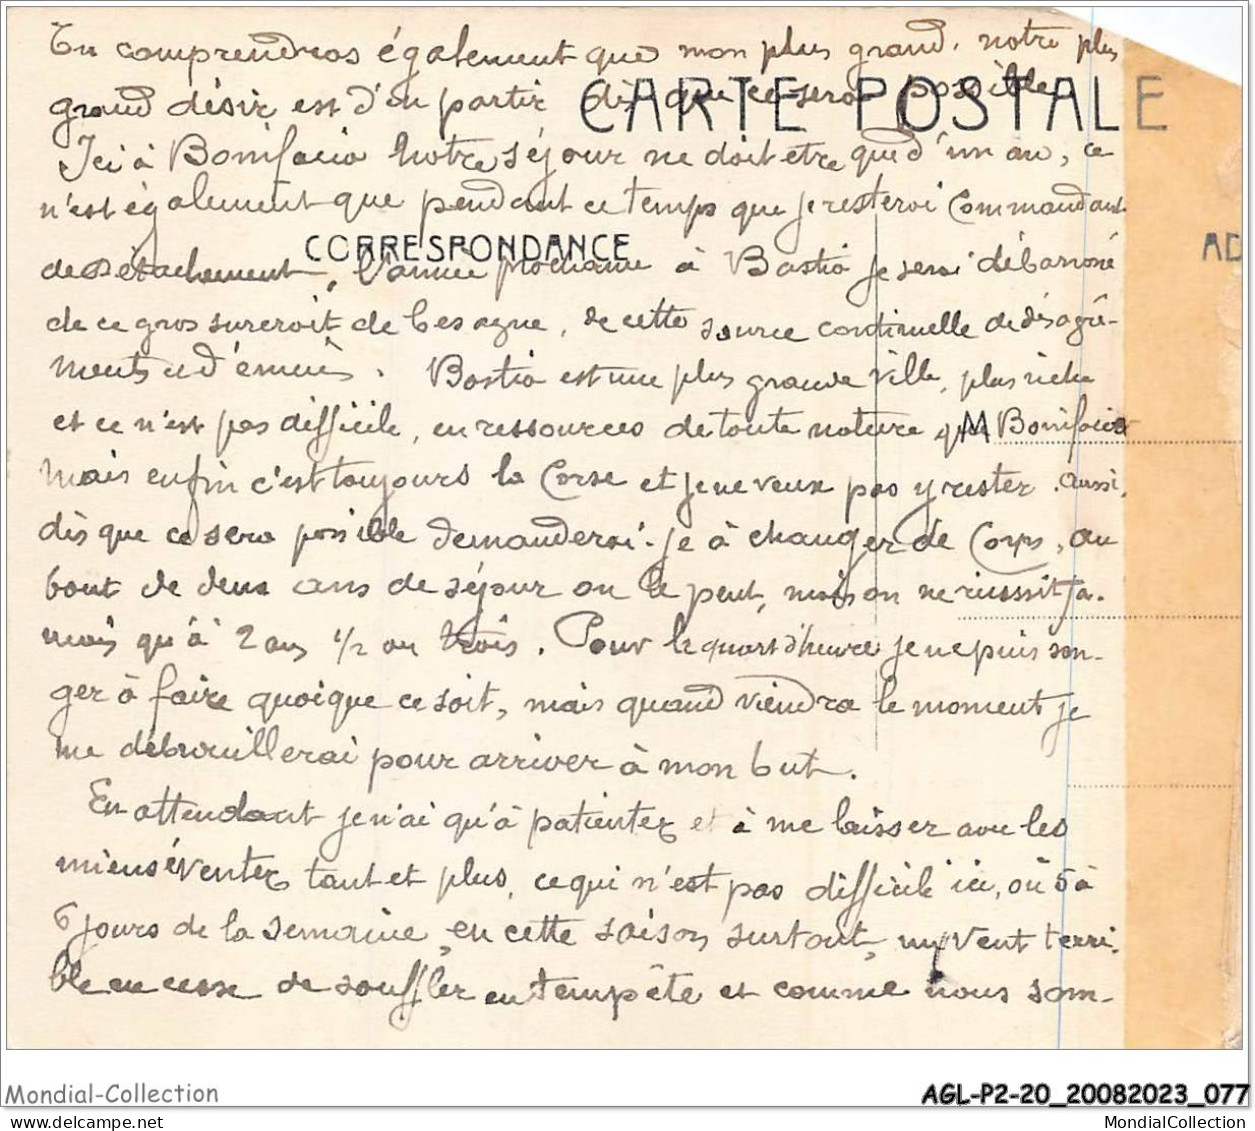 Tu comprendras également que mon plus grand, notre plus
grand désir est d'en partir dès que ce sera possible.
CARTE POSTALE
Ici à Bonifacio notre séjour ne doit etre que d'un an, ce
n'est également que pendant ce temps que je resterai Commandant
CORRESPONDANCE
AD
de détachement, l'année prochaine à Bastia je serai débarrassé
de ce gros surcroit de besogne, de cette source continuelle de désagré-
ments et d'ennuis. Bastia est une plus grande ville, plus riche
et ce n'est pas difficile, en ressources de toute nature que Bonifacio
M
mais enfin c'est toujours la Corse et je ne veux pas y rester. Aussi,
dès que ce sera possible demanderai-je à changer de Corps, au
bout de deux ans de séjour on le peut, mais on ne réussit ja-
mais qu'à 2 ans 1/2 ou trois. Pour le quart d'heure je ne puis son-
ger à faire quoique ce soit, mais quand viendra le moment je
me débrouillerai pour arriver à mon but.
En attendant je n'ai qu'à patienter et à me laisser avec les
miens éventer tant et plus, ce qui n'est pas difficile ici, où 5 à
6 jours de la semaine, en cette saison surtout, un vent terri-
ble ne cesse de souffler en tempête et comme nous som-
Mondial-Collection
AGL-P2-20_20082023_077
www.delcampe.net
MondialCollection